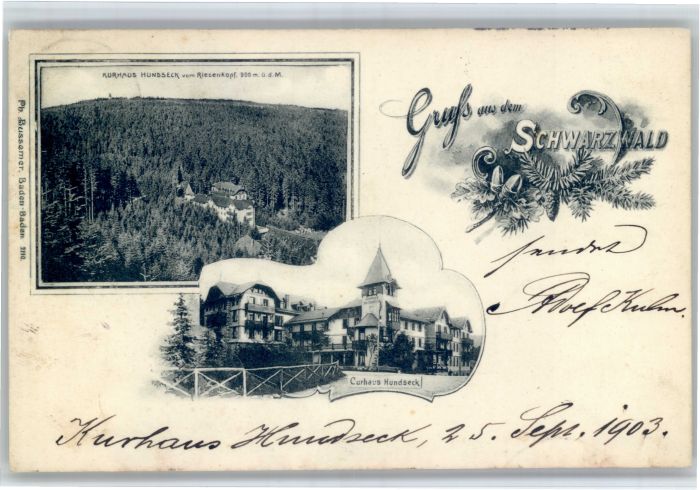 KURHAUS HUNDSECK vom Riesenkopf. 900 m. ü. d. M.
Gruß aus dem
SCHWARZWALD
sendet
Adolf Kulm.
Curhaus Hundseck
Kurhaus Hundseck, 25. Sept. 1903.
Ph. Bussemer, Baden-Baden 2110.